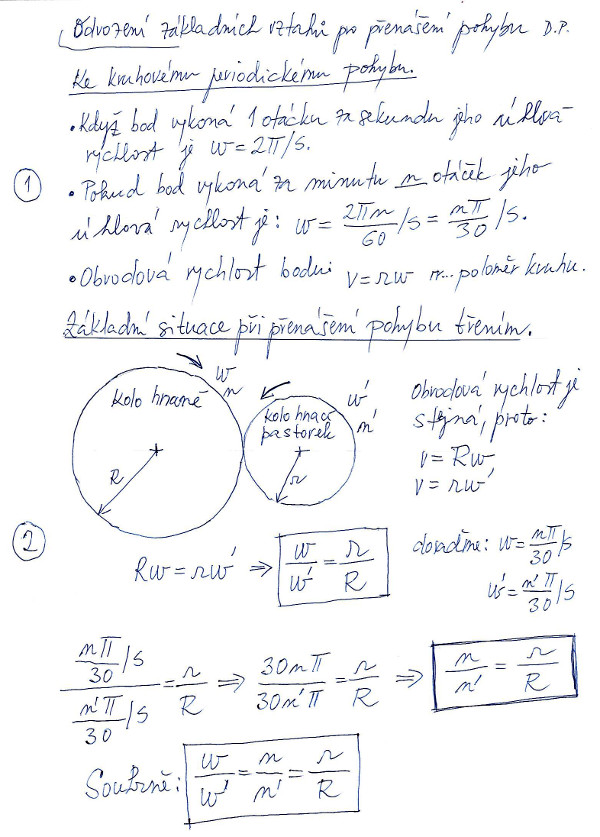 Odvození základních vztahů pro přenášení pohybu D.P.
Ke kruhovému periodickému pohybu.
• Když bod vykoná 1 otáčku za sekundu jeho úhlová
rychlost je ω = 2π/s.
① • Pokud bod vykoná za minutu n otáček jeho
úhlová rychlost je: ω = 2πn/60 /s = nπ/30 /s.
• Obvodová rychlost bodu: v = rω r... poloměr kruhu.
Základní situace při přenášení pohybu třením.
ω
n
kolo hnané
R
ω'
n'
kolo hnací
pastorek
r
Obvodová rychlost je
stejná, proto:
v = Rω
v = rω'
②
Rω = rω' ⇒ ω/ω' = r/R
dosaďme: ω = nπ/30 /s
ω' = n'π/30 /s
(nπ/30 /s)/(n'π/30 /s) = r/R ⇒ 30nπ/30n'π = r/R ⇒ n/n' = r/R
Souhrně: ω/ω' = n/n' = r/R